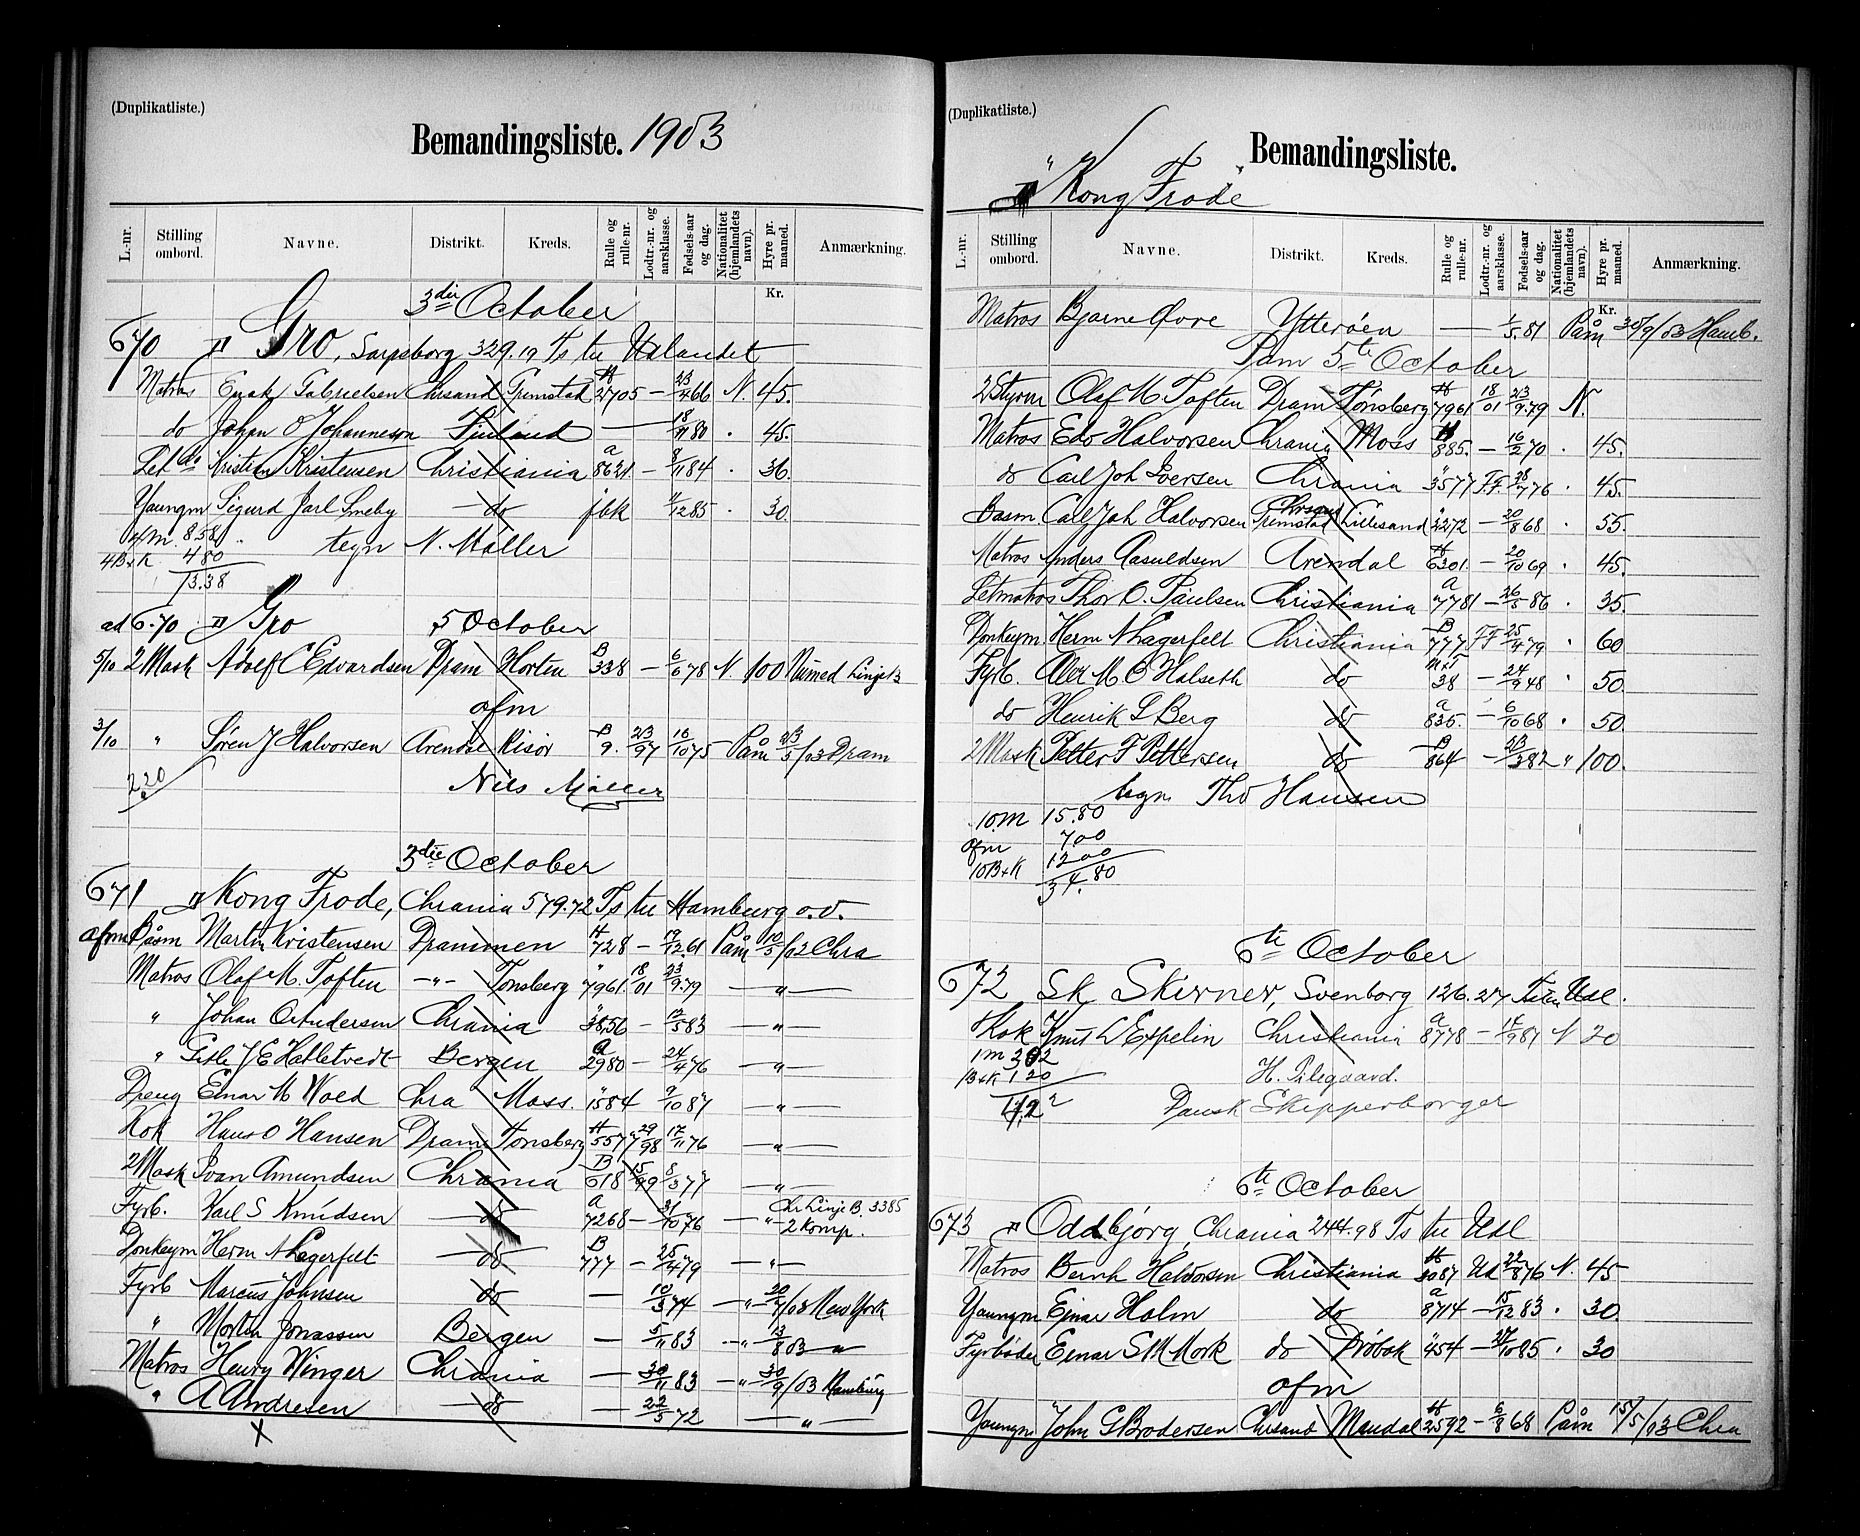 (Duplikatliste.)
Bemandingsliste. 1903
L.-nr. Stilling ombord. Navne. Distrikt. Kreds. Rulle og rulle-nr. Lodtr.-nr. og aarsklasse. Fødsels-aar og dag. Nationalitet (hjemlandets navn). Hyre pr. maaned. Anmærkning.
Kr.
3die October
670 Gro, Sarpsborg 329.19 Ts til Udlandet
Matros Enok Gabrielsen Chrsand Grimstad 2705 — 23/4 66 N. 45.
do Johan O Johanneson Finland — 18/11 80 . 45.
Let do Kristian Kristensen Christiania a 8621 — 8/11 84 . 36.
Youngm Sigurd Jarl Smeby — do jbk 4/12 85 . 30.
4m. 8.58 tegn N. Møller
4B+K 4 80
13.38
ad 670 Gro 5 October
5/10 2 Mask Adolf C Edvardsen Dram Horten B 338 — 6/6 78 N. 100
afm
3/10 " Søren J Halvorsen Arendal Risør B 9. 23/97 16/10 75 Påm 23/5/03 Dram
2 20
Nils Møller
3die October
671 Kong Frode, Chrania 579.72 Ts til Hamburg o.v.
afm Båsm Martin Kristensen Drammen 728 — 19/12 61 Påm 10/5/02 Chra
Matros Olaf M. Toften —"— Tønsberg 7961 18/01 23/9 79 — " —
" Johan Ørtudersen Chrania 3856 — 17/5 83 — " —
" Gisle J E Halletvedt Bergen a 2980 — 24/4 76 — " —
Dreng Einar M Woed Chra Moss. 1584 9/10 87 — " —
Kok Hans O Hansen Dram Tønsberg 5577 29/98 17/11 76 — " —
2 Mask Ivan Amundsen Chrania B 618 15/99 8/3 77 — " —
Fyrb. Karl S Knudsen — do a 7268 — 31/10 76 — " — Chr Linje B. 3385 2 Komp.
Donkeym Herm A Lagerfelt — do B 777 — 25/4 79 — " —
Fyrb Marcus Johnsen do — 10/3 74 — " — 20/7/03 New York
" Morten Jonassen Bergen — 5/11 83 — " — 13/8 03 "
Matros Henry Winger Chrania — 30/11 83 — " — 30/9/03 Hamburg
" A Andresen — do — 22/5 72 — " —
X
(Duplikatliste.)
Bemandingsliste.
"Kong Frode"
L.-nr. Stilling ombord. Navne. Distrikt. Kreds. Rulle og rulle-nr. Lodtr.-nr. og aarsklasse. Fødsels-aar og dag. Nationalitet (hjemlandets navn). Hyre pr. maaned. Anmærkning.
Kr.
Matros Bjarne Øvre Ytterøen — 1/5 81 Påm 30/9/03 Hamb.
Påm 5te October
2 Styrm Olaf M Toften Dram Tønsberg 7961 18/01 23/9 79 N.
Matros Edv Halvorsen Chrania Moss 885. — 16/2 70 . 45.
do Carl Joh Iversen Chrania " 3577 FF. 28/7 76 . 45.
Basm Carl Joh Halvorsen Grimstad Lillesand " 2272 — 20/8 68 . 55.
Matros Anders Aasuldsen Arendal 6301 — 20/10 69 . 45.
Letmatros Thor O. Paulsen Christiania a 7781 — 26/5 86 . 35.
Donkeym. Herm A Lagerfelt Christiania B 777 FF 25/4 79 " 60
Fyrb. Alex M. O Halseth do M+T 38 — 24/9 48 " 50.
do Henrik L Berg do a 836. — 6/10 68 " 50.
2 Mask Petter F Pettersen do B 864 — 23/3 82 " 100.
tegn Tho Hansen
10.m 15.80
afm 700
10B+K 1200
34.80
6te October
672 Sk Skirner, Svenborg 126.27 Udl.
Kok Knut L Expelin Christiania a 8778 — 14/9 87 N 20
1m 302
1B+K 1 20
H. Pilegaard.
Dansk Skipperborger
6te October
673 Oddbjørg, Chrania 244.98 Ts til Udl
Matros Bernh Halvorsen Christiania 3087 Ud 22/8 76 N. 45
Youngm Ejnar Holm do a 8714 — 15/12 83 . 30.
Fyrbøder Einar S M Mork do Drøbak " 454 — 27/10 85 . 30
afm
Youngm John G Brodersen Chrsand Mandal 2592 — 6/8 68 Påm 15/5/03 Chra